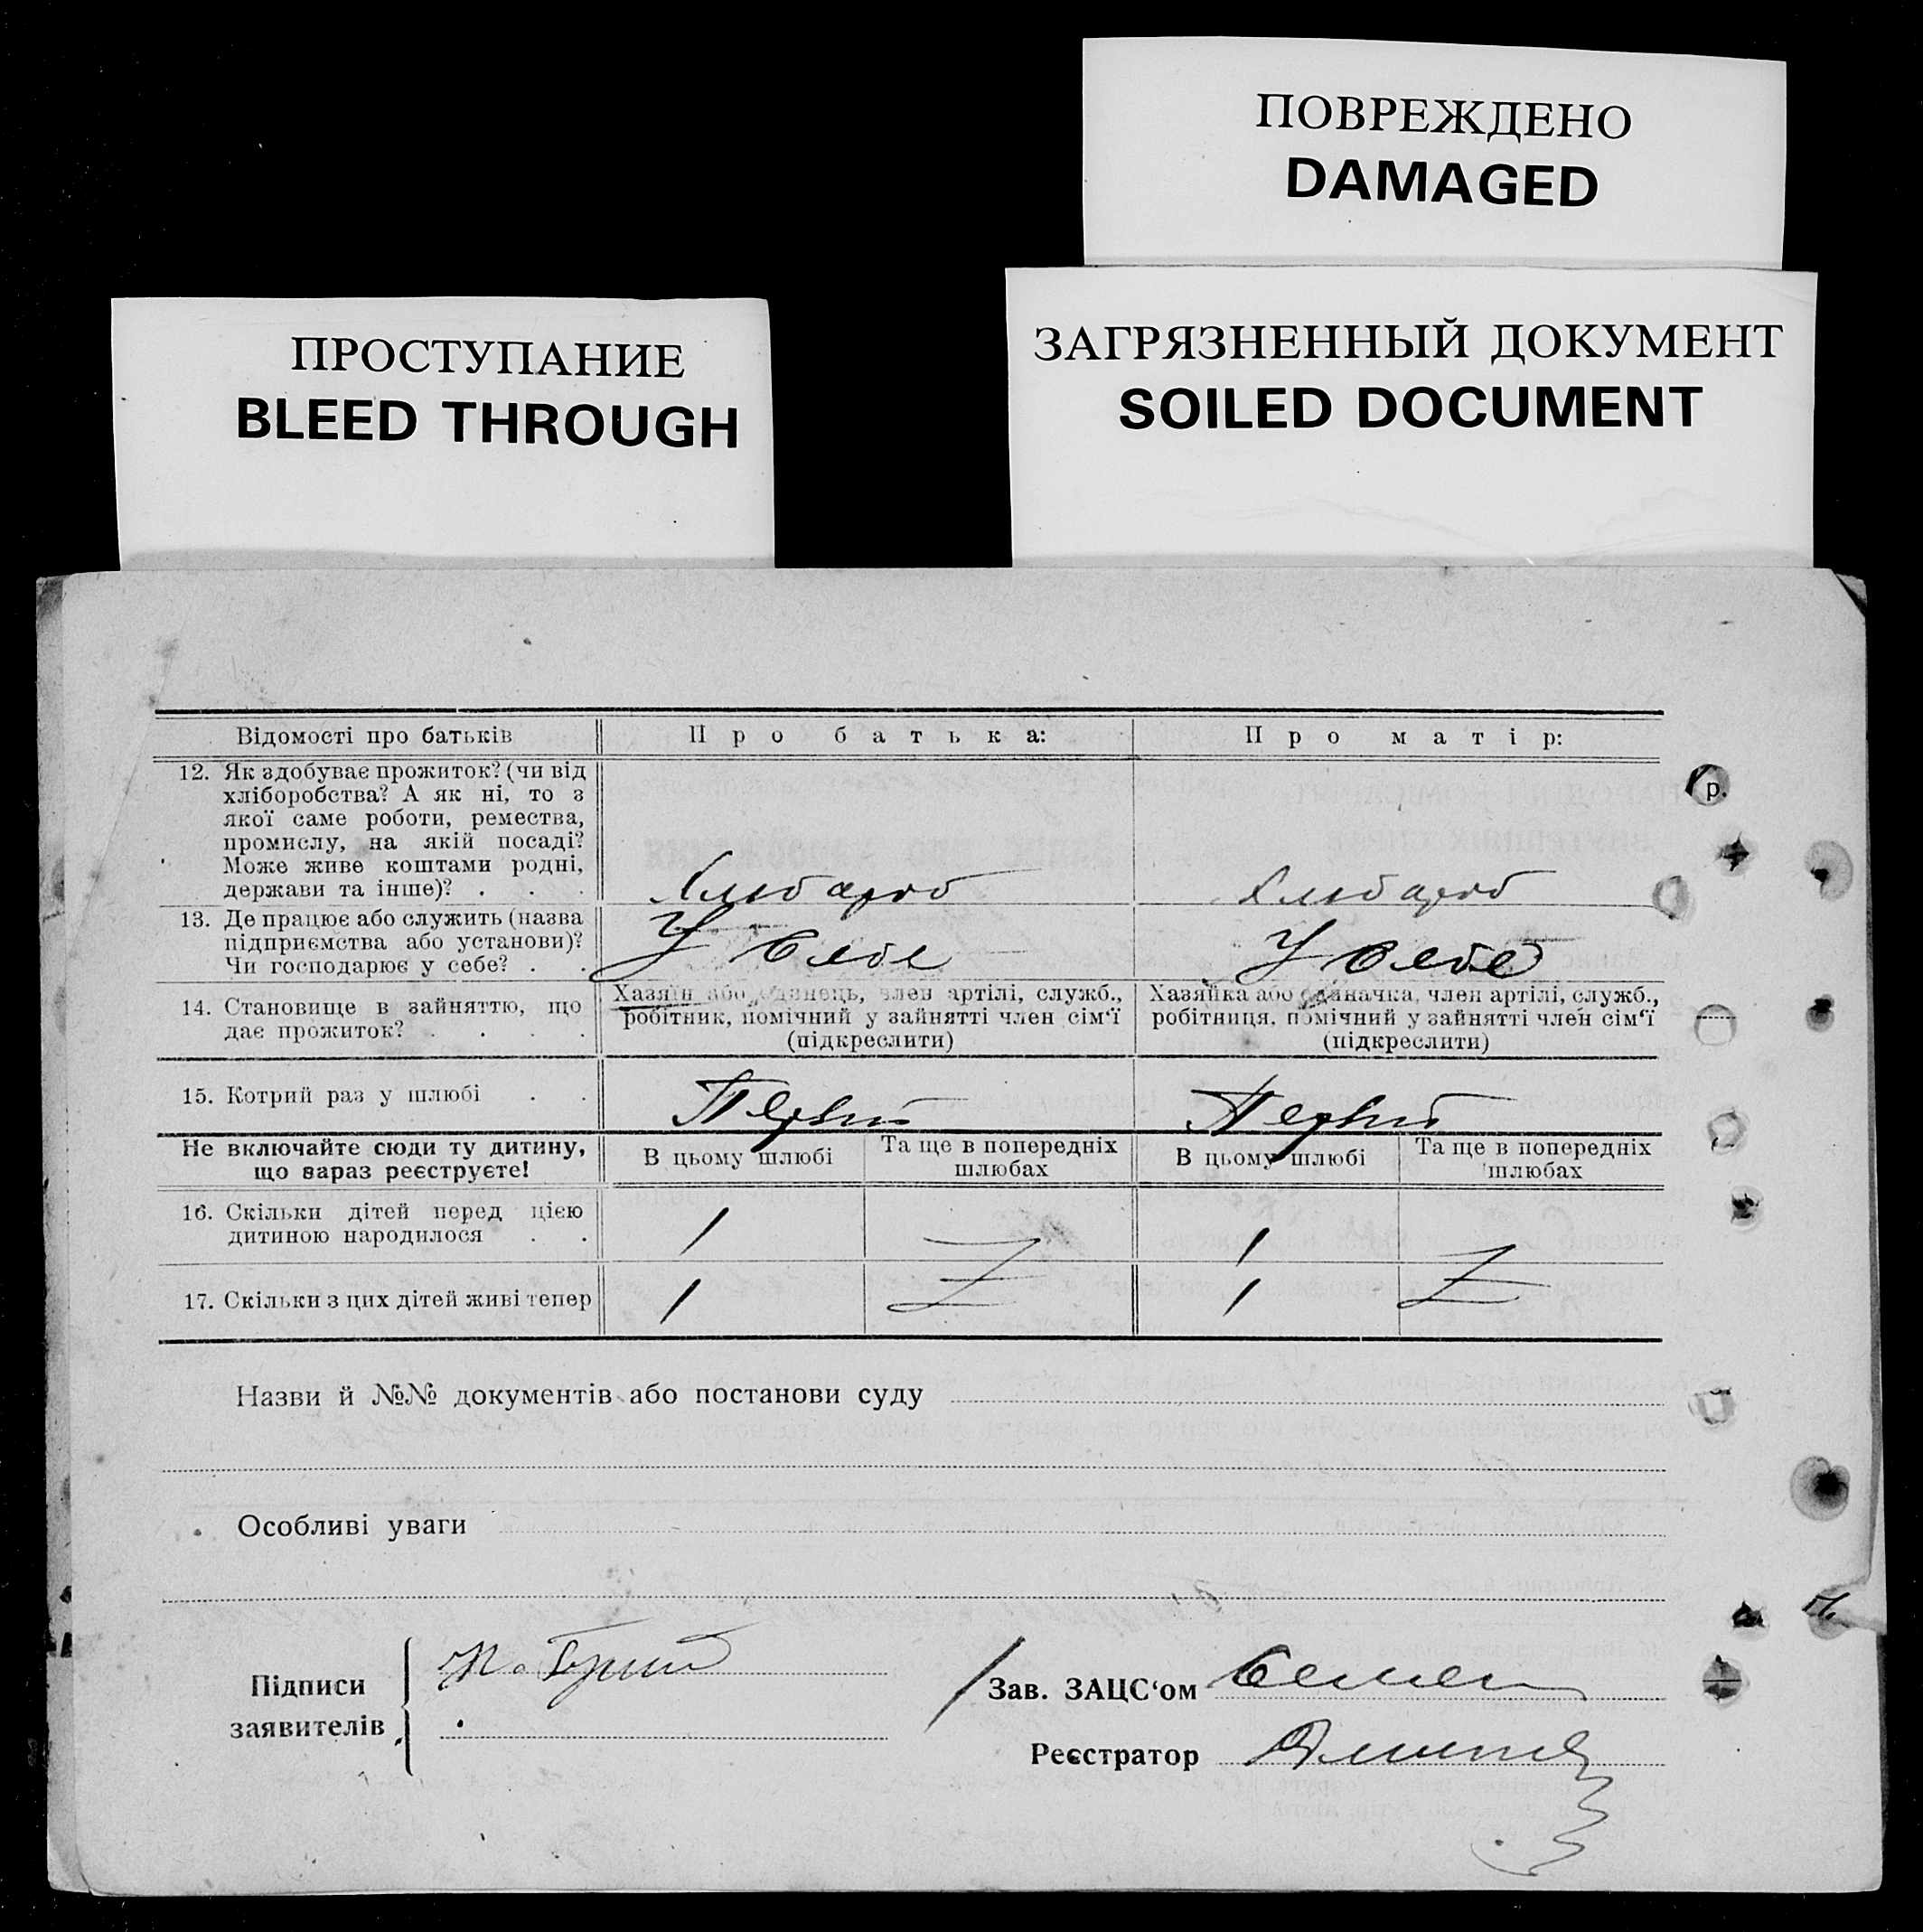 ПОВРЕЖДЕНО
DAMAGED
ПРОСТУПАНИЕ
BLEED THROUGH
ЗАГРЯЗНЕННЫЙ ДОКУМЕНТ
SOILED DOCUMENT
Відомості про батьків
Про батька:
Про матір:
12. Як здобуває прожиток? (чи від
хліборобства? А як ні, то з
якої саме роботи, ремества,
промислу, на якій посаді?
Може живе коштами родні,
держави та інше)? . . .
Хлибароб
Хлибароб
13. Де працює або служить (назва
підприємства або установи)?
Чи господарює у себе? . .
У себе
У себе
14. Становище в зайняттю, що
дає прожиток? . . . .
Хазяїн або одинець, член артілі, служб.,
робітник, помічний у зайнятті член сім'ї
(підкреслити)
Хазяйка або одиначка, член артілі, служб.,
робітниця, помічний у зайнятті член сім'ї
(підкреслити)
15. Котрий раз у шлюбі . .
Первий
Первий
Не включайте сюди ту дитину,
що зараз реєструєте!
В цьому шлюбі
Та ще в попередніх
шлюбах
В цьому шлюбі
Та ще в попередніх
шлюбах
16. Скільки дітей перед цією
дитиною народилося . .
1
1
17. Скільки з цих дітей живі тепер
1
1
р.
Назви й №№ документів або постанови суду
Особливі уваги
Підписи
заявителів
Зав. ЗАЦС‘ом
Реєстратор